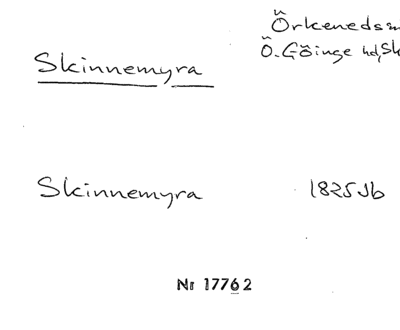 Örkeneds
Skinnemyra
Ö. Göinge hd, Sk
Skinnemyra 1825 Jb
Nr 17762